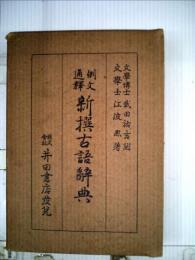 文學博士 武田祐吉閲
文學士 江波熙著
例文
通釋
新撰古語辭典
株式
會社 井田書店發兌